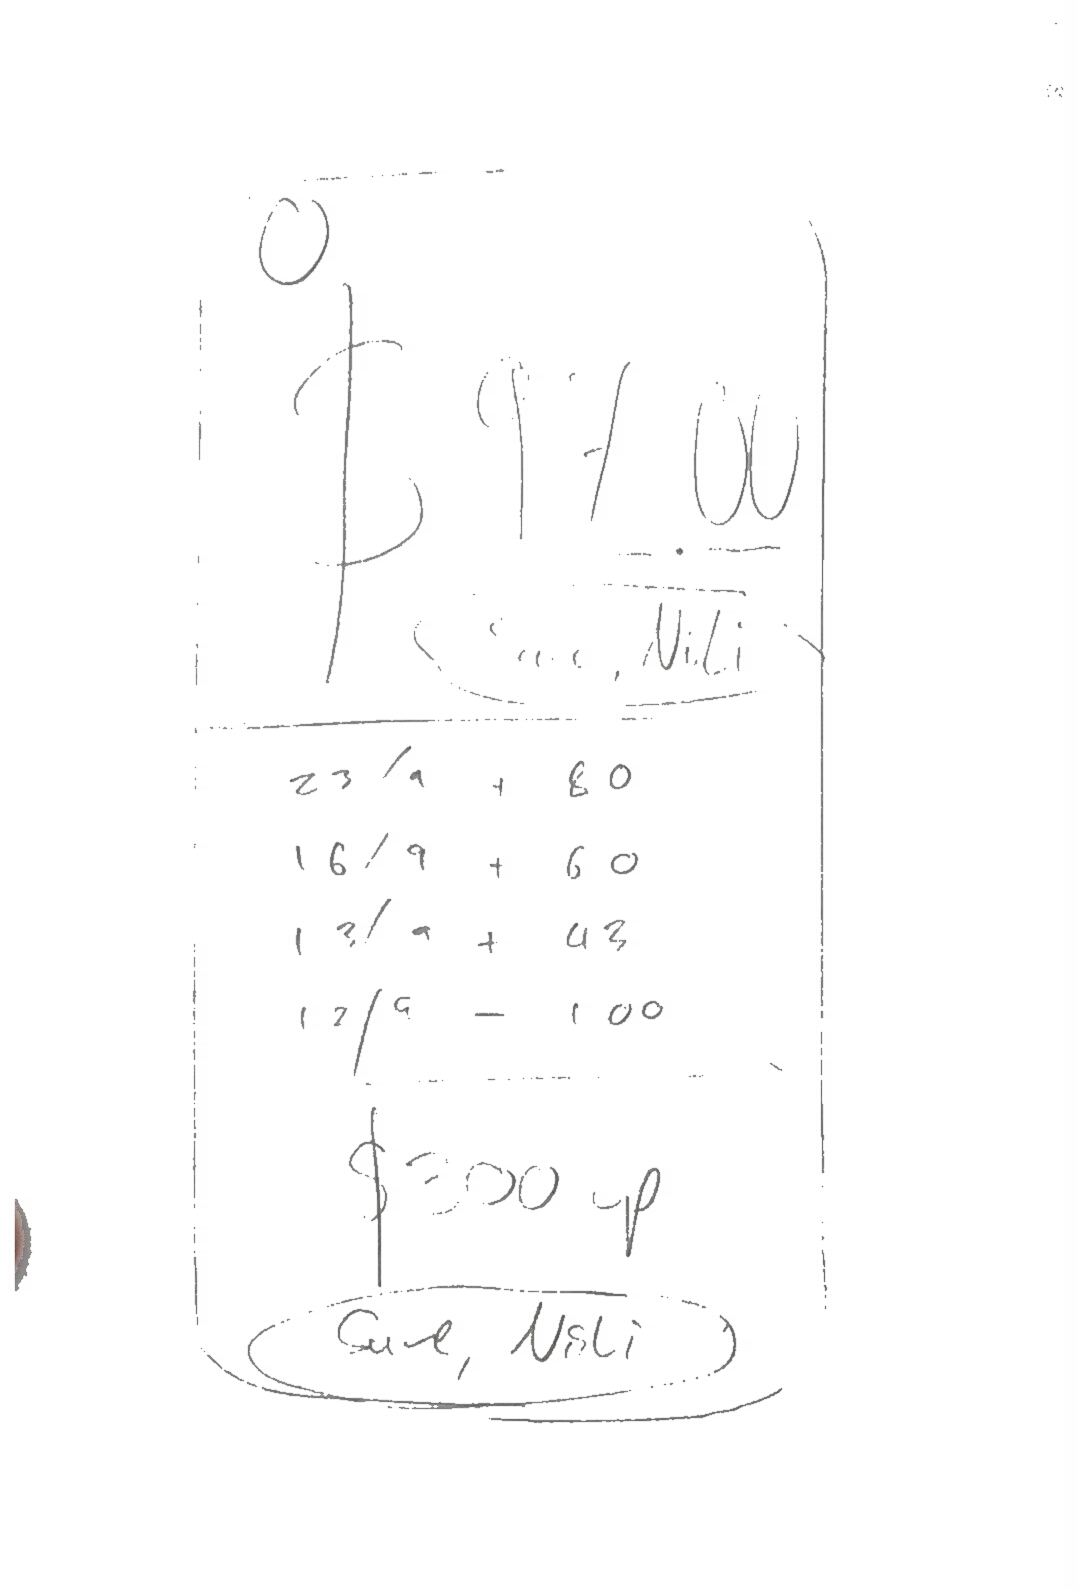 0
$ 97.00
Sure, NiLi
23/9 + 80
16/9 + 60
13/9 + 43
12/9 - 100
$300 up
Sure, NiLi